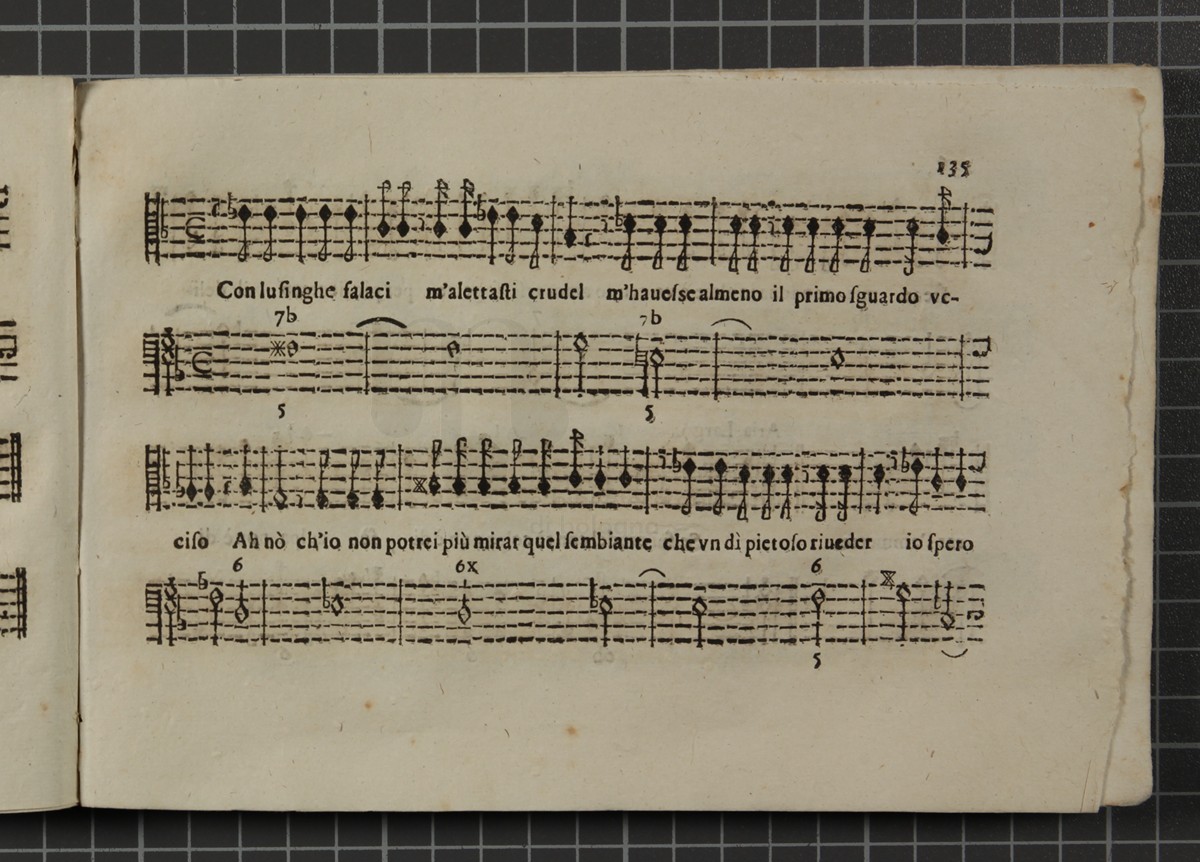 135
Con lusinghe falaci m'alettasti crudel m'hauesse almeno il primo sguardo vc-
7b 7b
5 5
ciso Ah nò ch'io non potrei più mirar quel sembiante che vn dì pietoso riueder io spero
6 6x 6
5